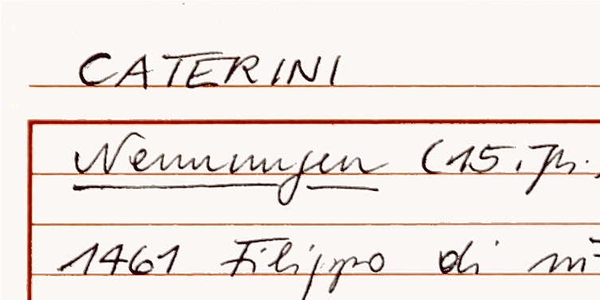 CATERINI
Nennungen (15. Jh.
1461 Filippo di